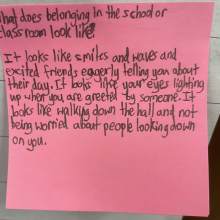 What does belonging in the school or
classroom look like?
It looks like smiles and waves and
excited friends eagerly telling you about
their day. It looks like your eyes lighting
up when you are greeted by someone. It
looks like walking down the hall and not
being worried about people looking down
on you.